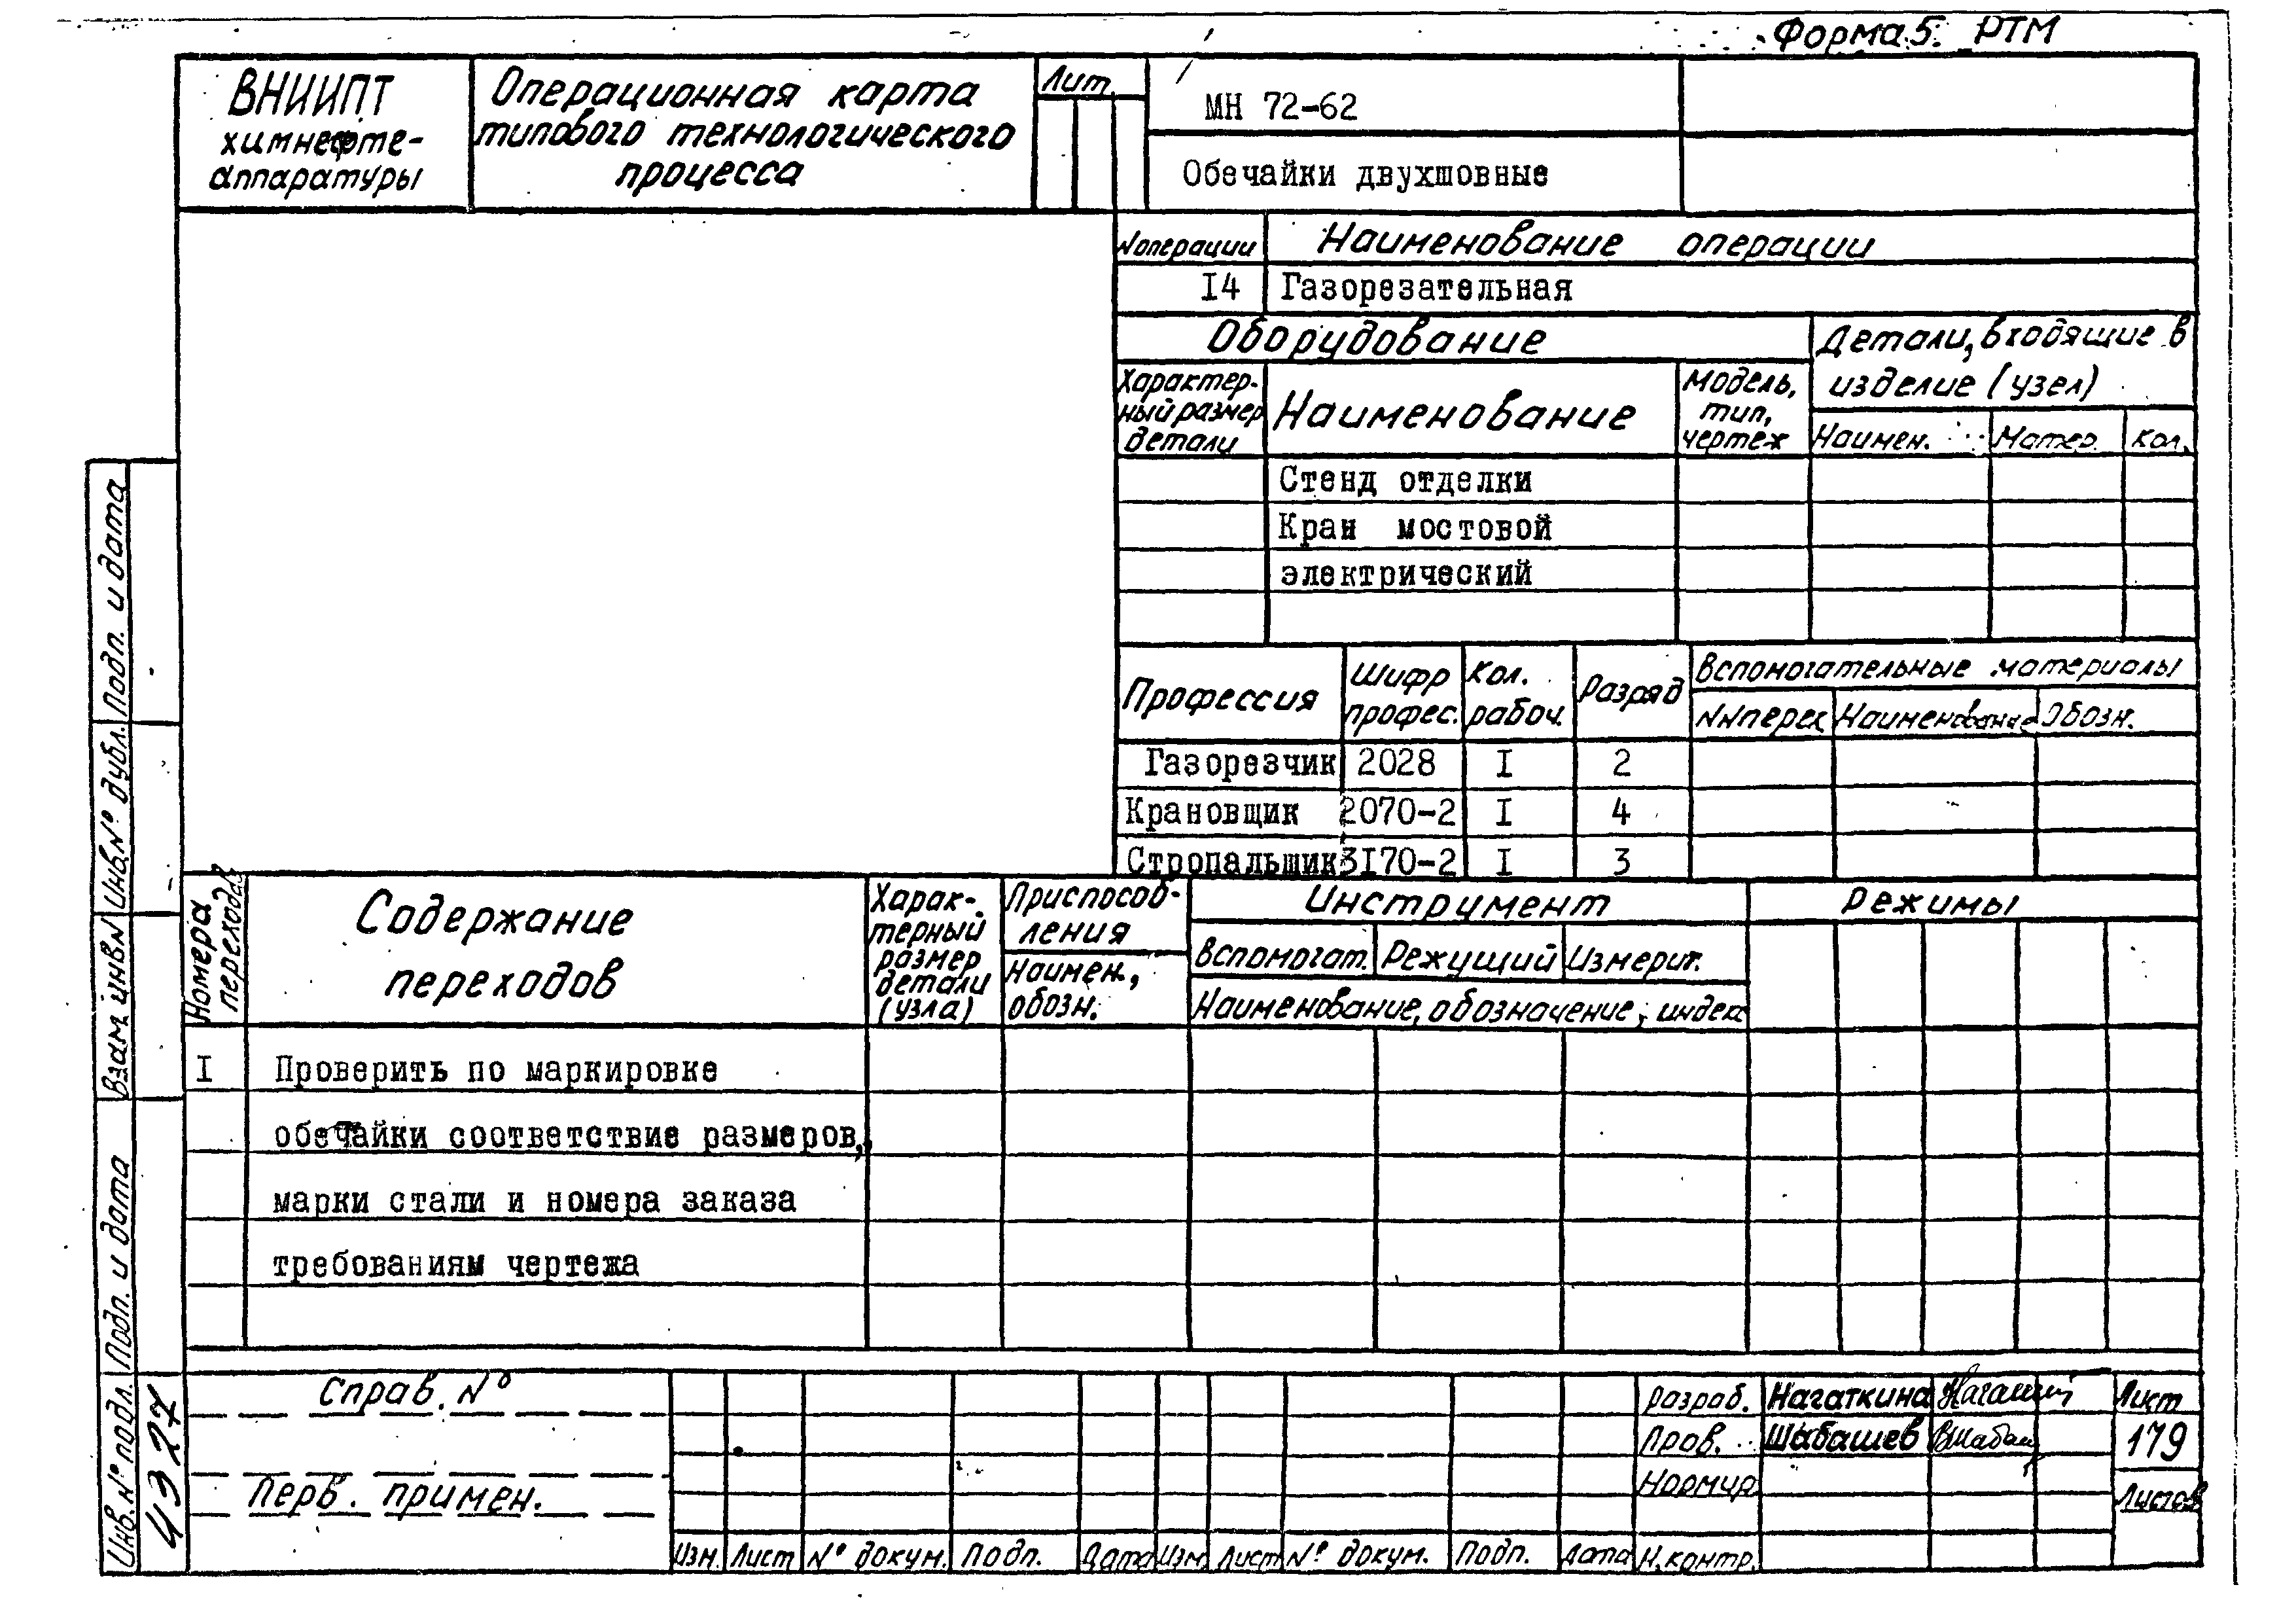 Форма 5. РТМ
ВНИИПТ
химнефте-
аппаратуры
Операционная карта
типового технологического
процесса
Лит.
МН 72-62
Обечайки двухшовные
№операции Наименование операции
I4 Газорезательная
Оборудование
Детали, входящие в
изделие (узел)
Характер-
ный размер
детали
Наименование
Модель,
тип,
чертеж
Наимен. Матер. Кол.
Стенд отделки
Кран мостовой
электрический
Профессия
Шифр
профес.
Кол.
рабоч.
Разряд
Вспомогательные материалы
№№перех Наименование Обозн.
Газорезчик 2028 I 2
Крановщик 2070-2 I 4
Стропальщик 3I70-2 I 3
Номера
переходов
Содержание
переходов
Харак-
терный
размер
детали
(узла)
Приспособ-
ления
Наимен.,
обозн.
Инструмент
Вспомогат. Режущий Измерит.
Наименование, обозначение, индекс
Режимы
I Проверить по маркировке
обечайки соответствие размеров,
марки стали и номера заказа
требованиям чертежа
Подп. и дата
Инв.№ дубл.
Взам. инв.№
Подп. и дата
Инв.№ подл.
4327
Справ. №
Перв. примен.
Изм. Лист № докум. Подп. Дата Изм. Лист № докум. Подп. Дата
Разраб. Нагаткина
Пров. Шабашев
Нормир.
Н.контр.
Лист
179
Листов